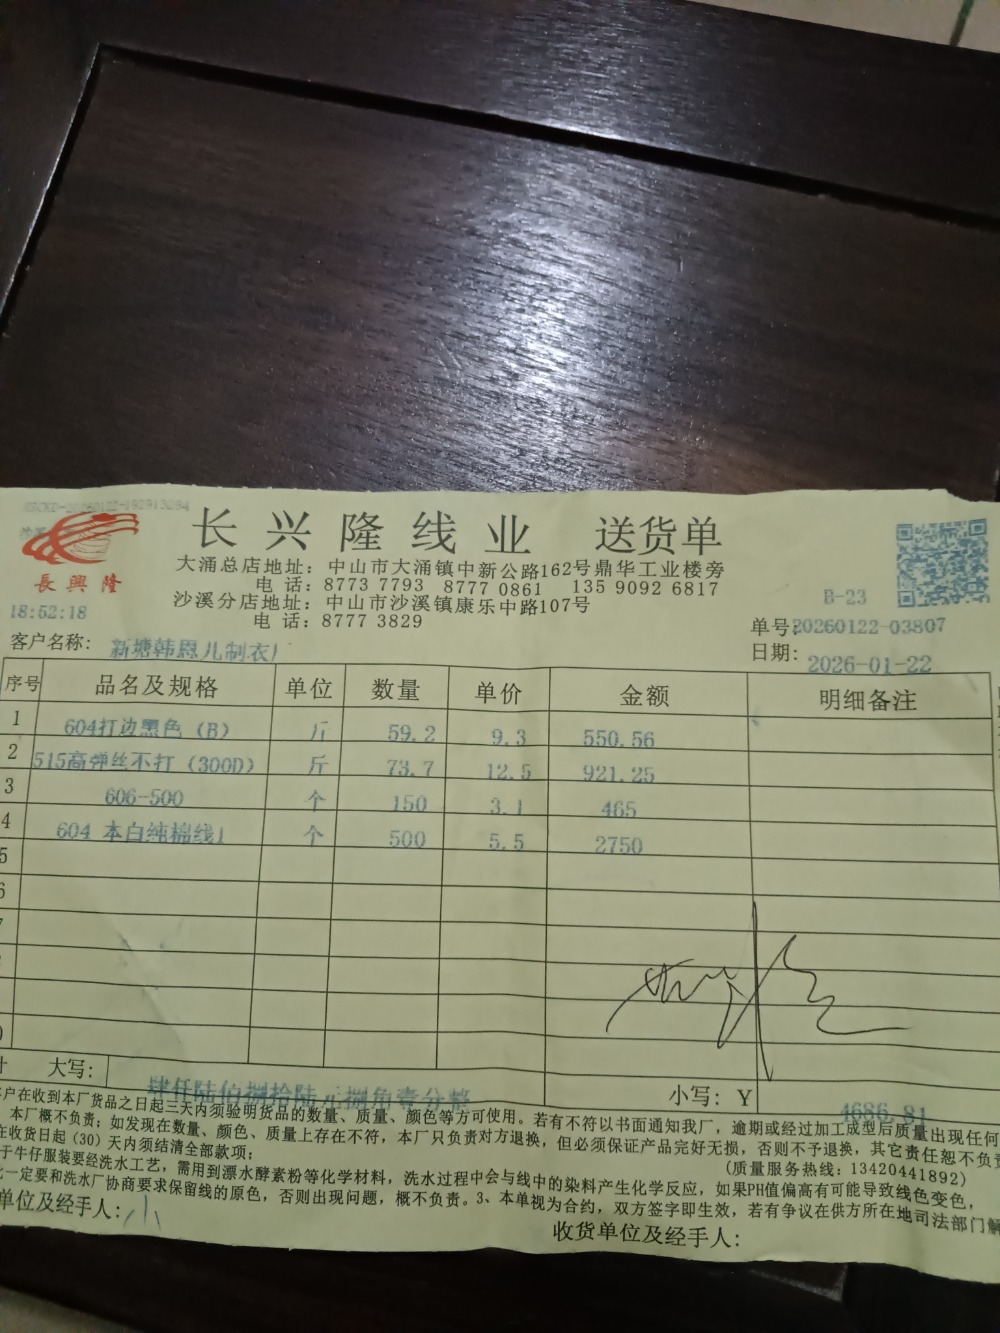 XSCKD-20260122-192913284
长兴隆线业 送货单
長興隆
大涌总店地址：中山市大涌镇中新公路162号鼎华工业楼旁
电 话：8773 7793 8777 0861 135 9092 6817
沙溪分店地址：中山市沙溪镇康乐中路107号
电 话：8777 3829
18:52:18
B-23
单号：20260122-03807
客户名称：新塘韩恩儿制衣厂
日期：2026-01-22
序号 品名及规格 单位 数量 单价 金额 明细备注
1 604打边黑色（B） 斤 59.2 9.3 550.56
2 515高弹丝不打（300D） 斤 73.7 12.5 921.25
3 606-500 个 150 3.1 465
4 604 本白纯棉线1 个 500 5.5 2750
5
6
计 大写：肆仟陆佰捌拾陆元捌角壹分整 小写：Y 4686.81
户在收到本厂货品之日起三天内须验明货品的数量、质量、颜色等方可使用。若有不符以书面通知我厂，逾期或经过加工成型后质量出现任何
本厂概不负责；如发现在数量、颜色、质量上存在不符，本厂只负责对方退换，但必须保证产品完好无损，否则不予退换，其它责任恕不负责
在收货日起（30）天内须结清全部款项；
（质量服务热线：13420441892）
于牛仔服装要经洗水工艺，需用到漂水酵素粉等化学材料，洗水过程中会与线中的染料产生化学反应，如果PH值偏高有可能导致线色变色，
一定要和洗水厂协商要求保留线的原色，否则出现问题，概不负责。3、本单视为合约，双方签字即生效，若有争议在供方所在地司法部门解
单位及经手人：
收货单位及经手人：